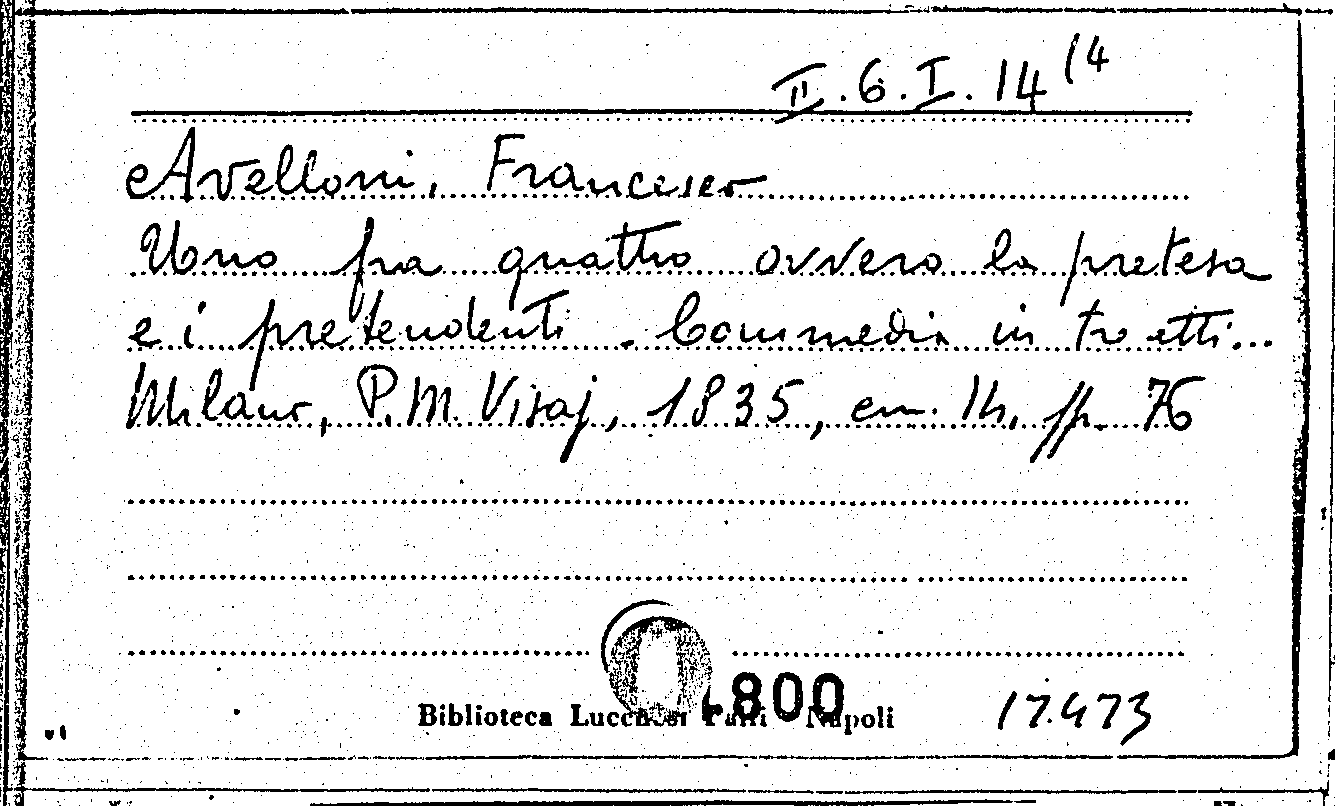 II.6.I.14 (4
Avelloni, Francesco
Uno fra quattro ovvero la pretesa
e i pretendenti. Commedia in tre atti...
Milano, P.M. Visaj, 1835, cm. 14, pp. 76
800
Biblioteca Lucchesi Palli Napoli
17.473